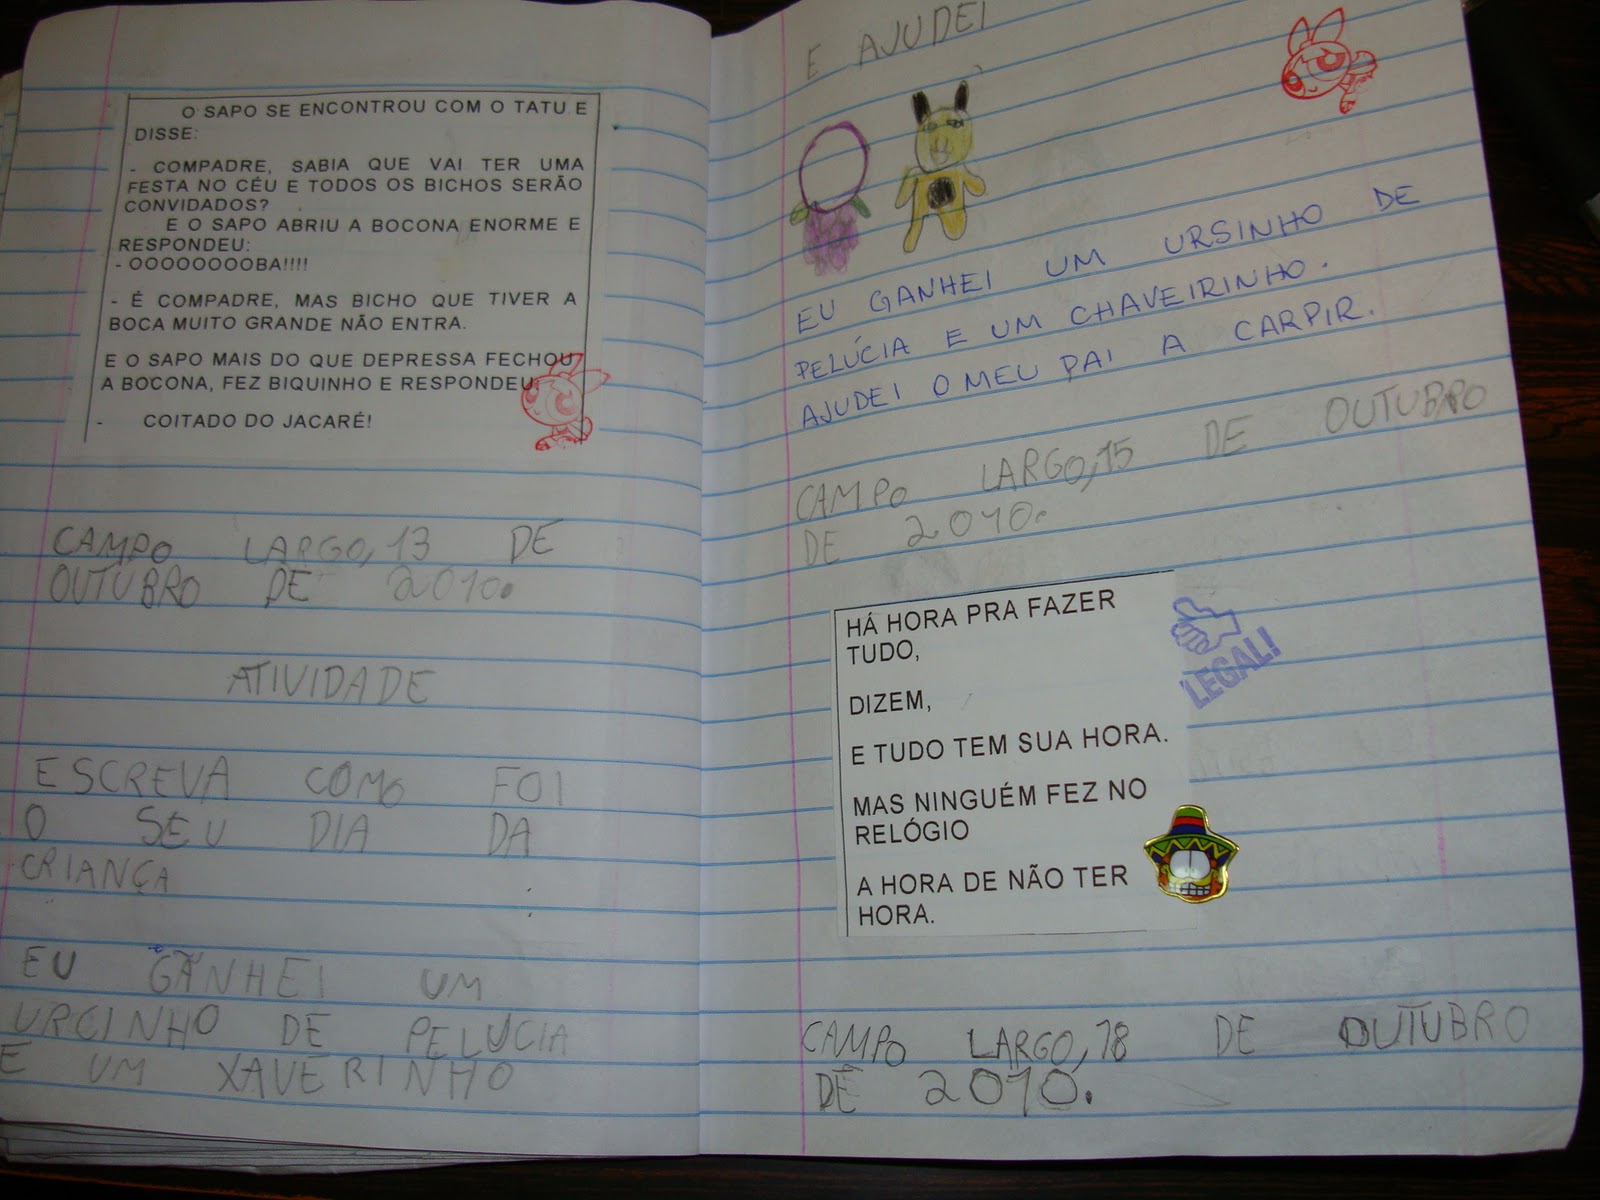 O SAPO SE ENCONTROU COM O TATU E
DISSE:
- COMPADRE, SABIA QUE VAI TER UMA
FESTA NO CÉU E TODOS OS BICHOS SERÃO
CONVIDADOS?
E O SAPO ABRIU A BOCONA ENORME E
RESPONDEU:
- OOOOOOOOBA!!!!
- É COMPADRE, MAS BICHO QUE TIVER A
BOCA MUITO GRANDE NÃO ENTRA.
E O SAPO MAIS DO QUE DEPRESSA FECHOU
A BOCONA, FEZ BIQUINHO E RESPONDEU:
- COITADO DO JACARÉ!
CAMPO LARGO, 13 DE
OUTUBRO DE 2010.
ATIVIDADE
ESCREVA COMO FOI
O SEU DIA DA
CRIANÇA
EU GANHEI UM
URCINHO DE PELUCIA
E UM XAVERINHO
E AJUDEI
EU GANHEI UM URSINHO DE
PELÚCIA E UM CHAVEIRINHO.
AJUDEI O MEU PAI A CARPIR.
CAMPO LARGO, 15 DE OUTUBRO
DE 2010.
HÁ HORA PRA FAZER
TUDO,
DIZEM,
E TUDO TEM SUA HORA.
MAS NINGUÉM FEZ NO
RELÓGIO
A HORA DE NÃO TER
HORA.
LEGAL!
CAMPO LARGO, 18 DE OUTUBRO
DE 2010.